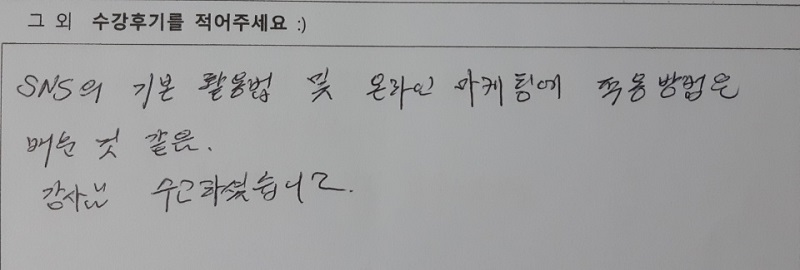 그 외 수강후기를 적어주세요 :)
SNS의 기본 활용법 및 온라인 마케팅에 적용방법은
배운 것 같음.
강사님 수고하셨습니다.